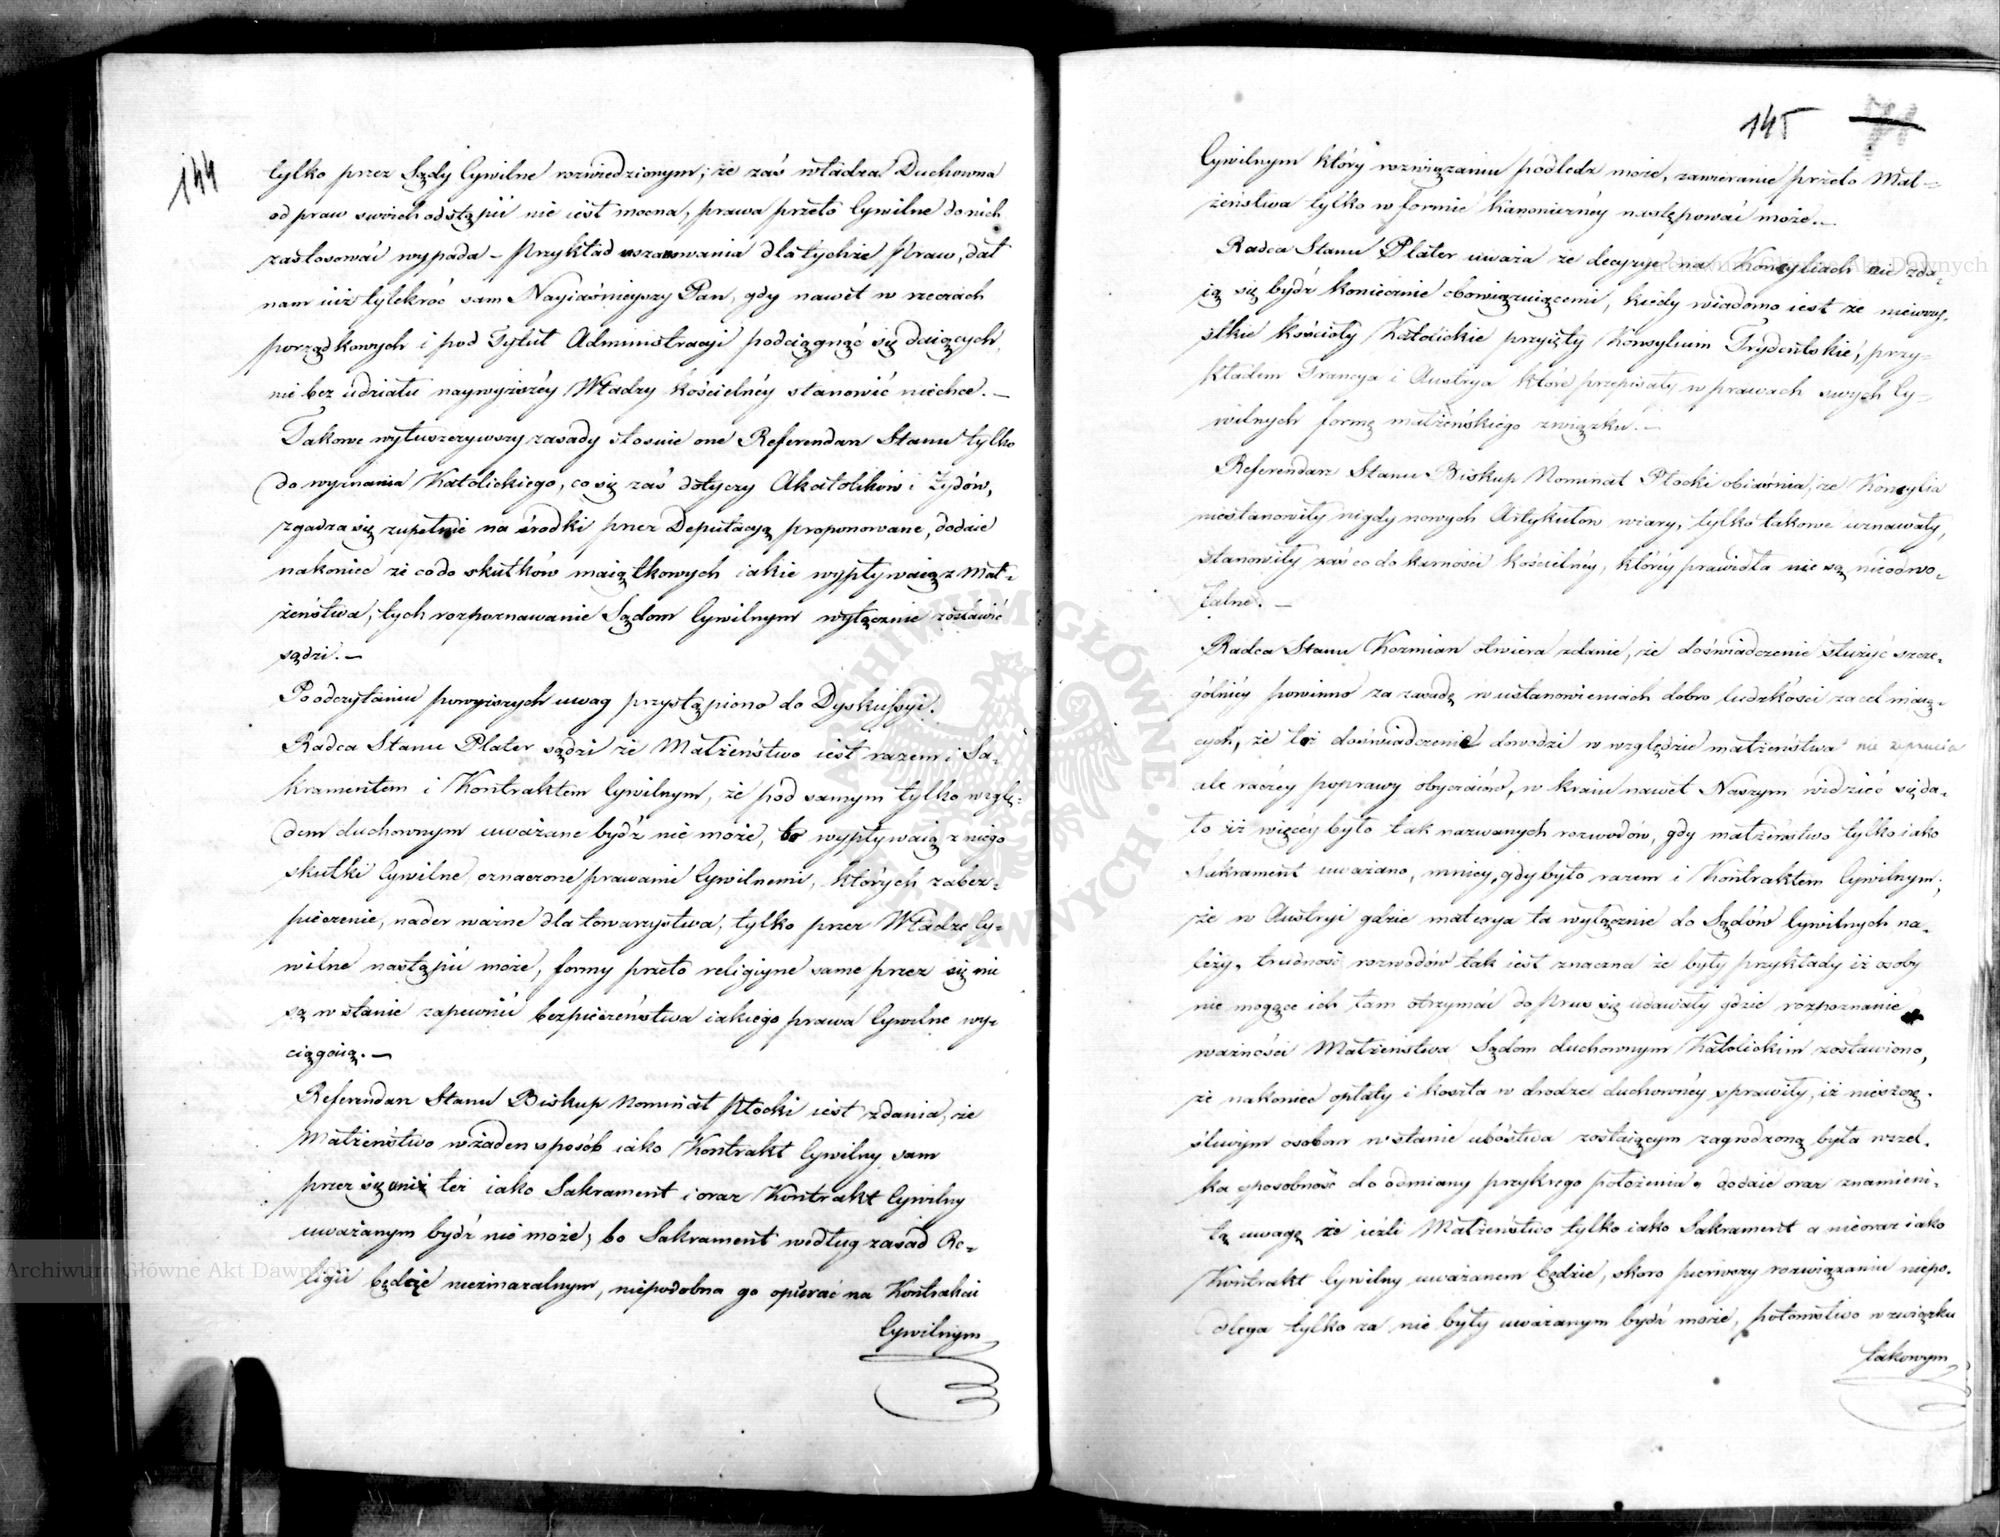 144
tylko przez Sądy Cywilne rozwiedzionym; że zaś władza Duchowna
od praw swoich odstąpić nie iest mocna, prawa przeto Cywilne do nich
zastosować wypada – Przykład uszanowania dla tychże Praw, dał
nam iuż tylekroć sam Nayiaśnieyszy Pan, gdy nawet w rzeczach
porządkowych i pod Tytuł Administracyi podciągnąć się daiących,
nic bez udziału naywyższéy Władzy Kościelnéy stanowić niechce. –
Takowe wyłuszczywszy zasady stosuie one Referendarz Stanu tylko
do wyznania Katolickiego, co się zaś dotyczy Akatolików i Żydów,
zgadza się zupełnie na środki przez Deputacyą proponowane, dodaie
nakoniec że co do skutków maiątkowych iakie wypływaią z Mał-
żeństwa, tych rozpoznawanie Sądom Cywilnym wyłącznie zostawić
sądzi. –
Po odczytaniu powyższych uwag przystąpiono do Dyskussyi.
Radca Stanu Plater sądzi że Małżeństwo iest razem i Sa-
kramentem i Kontraktem Cywilnym, że pod samym tylko wzglę-
dem duchownym uważane bydź nie może, bo wypływaią z niego
skutki Cywilne oznaczone prawami Cywilnemi, których zabez-
pieczenie, nader ważne dla towarzystwa, tylko przez Władze Cy-
wilne nastąpić może, formy przeto religiyne same przez się nie
są w stanie zapewnić bezpieczeństwa iakiego prawa Cywilne wy-
ciągaią. –
Referendarz Stanu Biskup Nominat Płocki iest zdania, że
Małżeństwo w żaden sposób iako Kontrakt Cywilny sam
przez się aniż też iako Sakrament i oraz Kontrakt Cywilny
uważanym bydź nie może, bo Sakrament według zasad Re-
ligii będąc niezmazalnym, niepodobna go opierać na Kontrakcie
Cywilnym
145 71
Cywilnym który rozwiązaniu podledz może, zawieranie przeto Mał-
żeństwa tylko w formie Kanoniczney następować może. –
Radca Stanu Plater uważa że decyzye na Koncyliach nie zda-
ią się bydź koniecznie obowiązuiącemi, kiedy wiadomo iest że niewszy-
stkie Kościoły Katolickie przyięły Konsylium Trydentskie, przy-
kładem Francya i Austrya które przepisały w prawach swych Cy-
wilnych formę małżeńskiego związku. –
Referendarz Stanu Biskup Nominat Płocki obiaśnia, że Koncylia
niestanowiły nigdy nowych Artykułów wiary, tylko takowe uznawały,
stanowiły zaś co do karności kościelnéy, którey prawidła nie są nieodwo-
łalne. –
Radca Stanu Kozmian otwiera zdanie, że doświadczenie służyć szcze-
gólniéy powinno za zasadę w ustanowieniach dobro ludzkości za cel maią-
cych, że toż doświadczenie dowodzi w względzie małżeństwa nie zepsucia
ale raczéy poprawy obyczaiów, w kraiu nawet Naszym widzieć się da-
ło iż więcéy było tak nazwanych rozwodów, gdy małżeństwo tylko iako
Sakrament uważano, mniéy, gdy było razem i Kontraktem Cywilnym;
że w Austryi gdzie materya ta wyłącznie do Sądów Cywilnych na-
leży, trudność rozwodów tak iest znaczna że były przykłady iż osoby
nie mogące ich tam otrzymać do Prus się udawały gdzie rozpoznanie
ważności Małżeństwa Sądom duchownym Katolickim zostawiono,
że nakoniec opłaty i koszta w drodze duchownéy sprawiły, iż nieszczę-
śliwym osobom w stanie ubóstwa zostaiącym zagrodzoną była wszel-
ka sposobność do odmiany przykrego położenia, dodaie oraz znamieni-
tą uwagę że ieżli Małżeństwo tylko iako Sakrament a nie oraz iako
Kontrakt Cywilny uważanem będzie, skoro pierwszy rozwiązaniu niepo-
dlega tylko za nie były uważanym bydź może, potomstwo w związku
takowym
Archiwum Główne Akt Dawnych
Archiwum Główne Akt Dawnych
ARCHIWUM GŁÓWNE AKT DAWNYCH